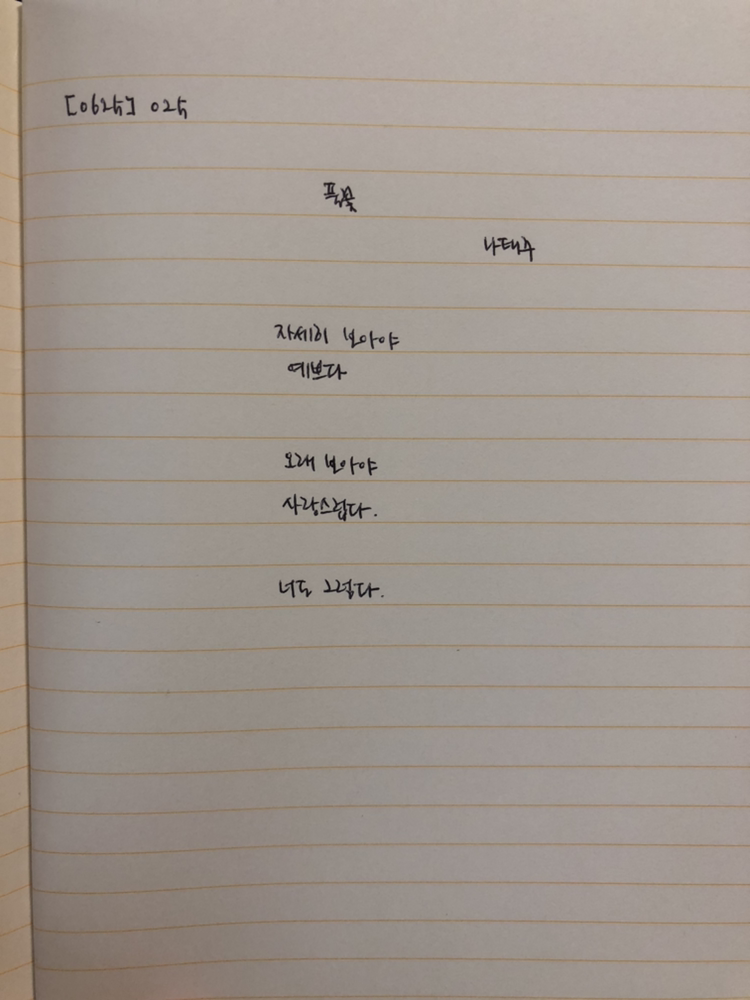 [0625] 025
풀꽃
나태주
자세히 보아야
예쁘다
오래 보아야
사랑스럽다.
너도 그렇다.